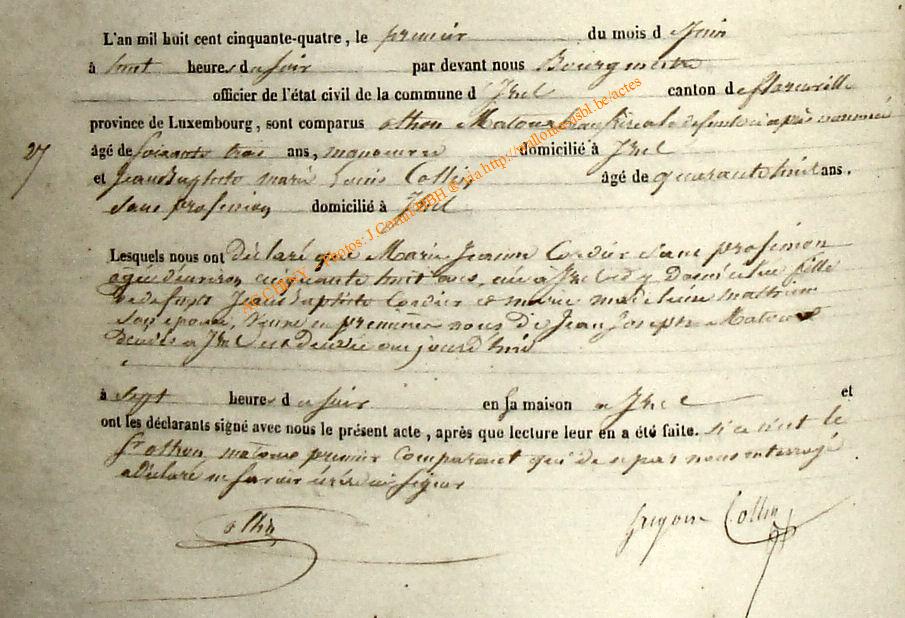 L'an mil huit cent cinquante-quatre, le premier du mois d e Juin
à huit heures du soir par devant nous Bourgmestre
officier de l'état civil de la commune d' Izel canton de florenville
province de Luxembourg, sont comparus othon Matoux
âgé de soixante trois ans, manoeuvre domicilié à Izel
27
et Jean Baptiste marie Louis Collin âgé de quarante huit ans.
Sans profession domicilié à Izel
Lesquels nous ont déclaré que Marie Jeanne Cordier Sans profession
agée d'environ cinquante huit ans, née à Izel et y Domiciliée fille
de Jean Baptiste Cordier et marie
Son épouse, Veuve en premières de Jean Joseph Matoux
à Izel est décédée aujourd'hui
à Sept heures du soir en sa maison a Izel et
ont les déclarants signé avec nous le présent acte, après que lecture leur en a été faite. si ce n'est le
Sr othon matoux premier Comparant qui de ce par nous interrogé
a déclaré ne Savoir écrire ni Signer
Collin
ACCUEIL Photos: J.C via http://wallonica asbl.be/actes